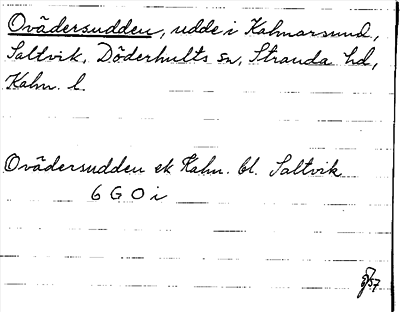 Ovädersudden, udde i Kalmarsund,
Saltvik, Döderhults sn, Stranda hd,
Kalm. l.
Ovädersudden ek Kalm. bl. Saltvik
6 G O i
57